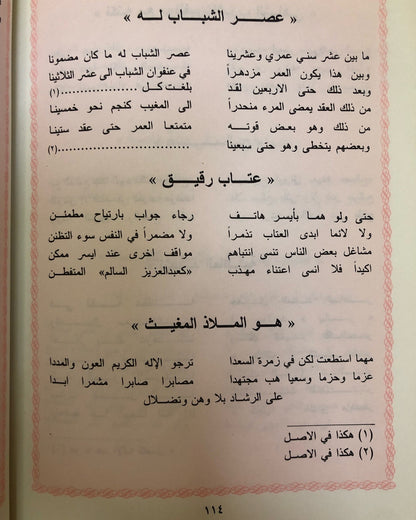 « عصر الشباب له »
ما بين عشر سني عمري وعشرينا عصر الشباب له ما كان مضمونا
وبين هذا يكون العمر مزدهراً في عنفوان الشباب الى عشر الثلاثينا
وبعد ذلك حتى الاربعين لقد بلغت كل ....................(١)
من ذلك العقد يمضى المرء منحدراً الى المغيب كنجم نحو خمسينا
من ذلك وهو بعض قوتـــه متمتعا العمر حتى عقد ستينا
وبعضهم يتخطى وهو حتى سبعينا ....................(٢)
« عتاب رقيق »
حتى ولو هما بأيسر هاتف رجاء جواب بارتياح مطمئن
ولا لائما ابدى العتاب تذمراً ولا مضمراً في النفس سوء التظنن
مشاغل بعض الناس تنسى انتباهم مواقف اخرى عند ايسر ممكن
اكيداً فلا انسى اعتناء مهذب «كعبدالعزيز السالم» المتفطن
« هو الملاذ المغيث »
مهما استطعت لكن في زمرة السعدا ترجو الإله الكريم العون والمددا
عزما وحزما وسعيا هب مجتهدا مصابرا صابرا مشمرا ابدا
على الرشاد بلا وهن وتضلال
(١) هكذا في الاصل
(٢) هكذا في الاصل
١١٤